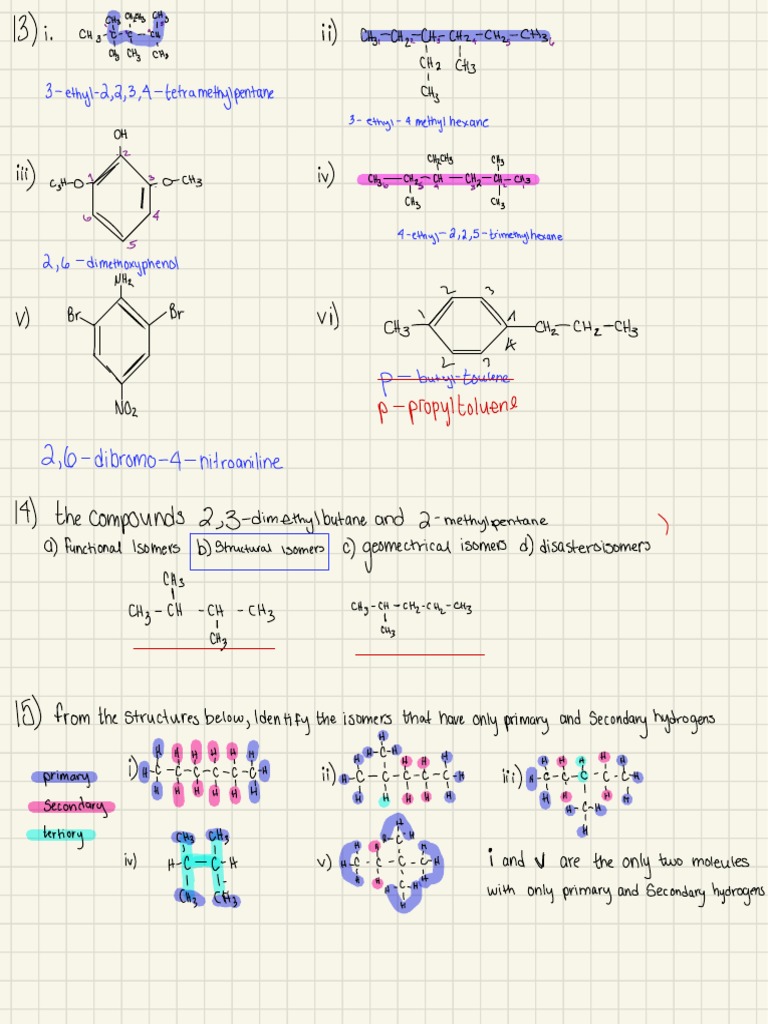 13) i.
CH3 CH2CH3 CH3
CH3 - C - C - CH
CH3 CH3 CH3
3-ethyl-2,2,3,4-tetramethylpentane
ii)
CH3-CH2-CH2-CH2-CH2-CH3 6
CH2 CH3
CH3
3-ethyl-4 methyl hexane
iii)
OH
2
1 3
O-CH3
6 4
5
2,6-dimethoxyphenol
iv)
CH2CH3 CH3
CH3 - CH - CH - CH2 - CH - CH3
CH3 CH3
4-ethyl-2,2,5-trimethylhexane
v)
NH2
Br Br
NO2
2,6-dibromo-4-nitroaniline
vi)
2 3
CH3 1 4 CH2-CH2-CH3
p-butyl-toulene
p-propyltoluene
14) the compounds 2,3-dimethylbutane and 2-methylpentane )
a) functional Isomers b) Structural isomers c) geomectrical isomers d) disasteroisomers
CH3
CH3-CH -CH -CH3
CH3
CH3-CH-CH2-CH2-CH3
CH3
15) from the structures below, Identify the isomers that have only primary and Secondary hydrogens
primary
Secondary
tertiory
i)
H H H H H H
H-C-C-C-C-C-C-H
H H H H H H
ii)
H
H-C-H
H H H H
H-C-C-C-C-C-H
H H H H H
iii)
H H H H
H-C-C-C-C-C-H
H H H H
H-C-H
H
iv)
CH3 CH3
H-C-C-H
CH3 CH3
v)
H
H-C-H
H H H
H-C-C-C-C-H
H H H
H-C-H
H
i and v are the only two molecules
with only primary and Secondary hydrogens